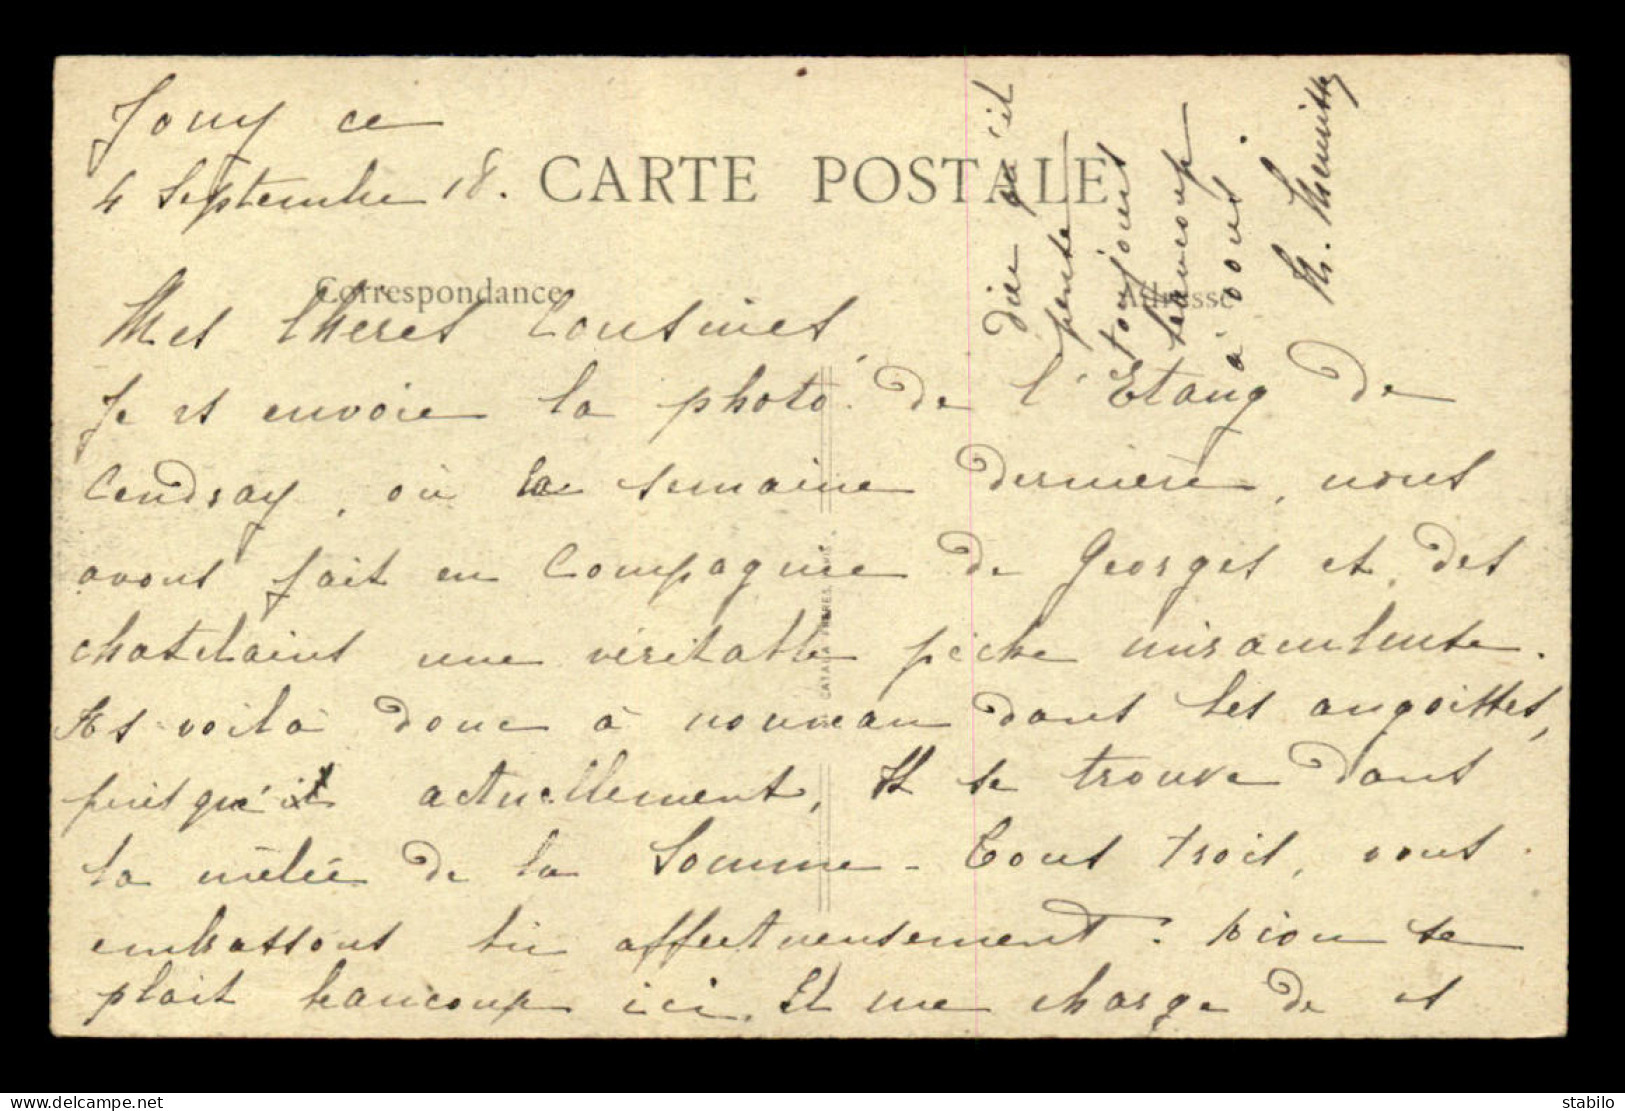 Jouy ce
4 Septembre 18.
CARTE POSTALE
Correspondance
Adresse
Mes Chères Cousines,
Je vs envoie la photo. de l'Etang de
Cendray, où la semaine dernière, nous
avons fait en compagnie de Georges et des
chatelains une véritable pêche miraculeuse.
voilà donc à nouveau dans les angoisses,
puisqu'il actuellement, Il se trouve dans
la mêlée de la Somme - Tous trois, vous
embrassons bien affectueusement. se
plait beaucoup ici, Il me charge de vs
dire qu'il
pense
toujours
beaucoup
à vous.
CATALA FRERES, PARIS
stabilo